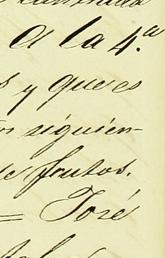 A la 4.ª
y que es
siguien-
de frutos.
= José